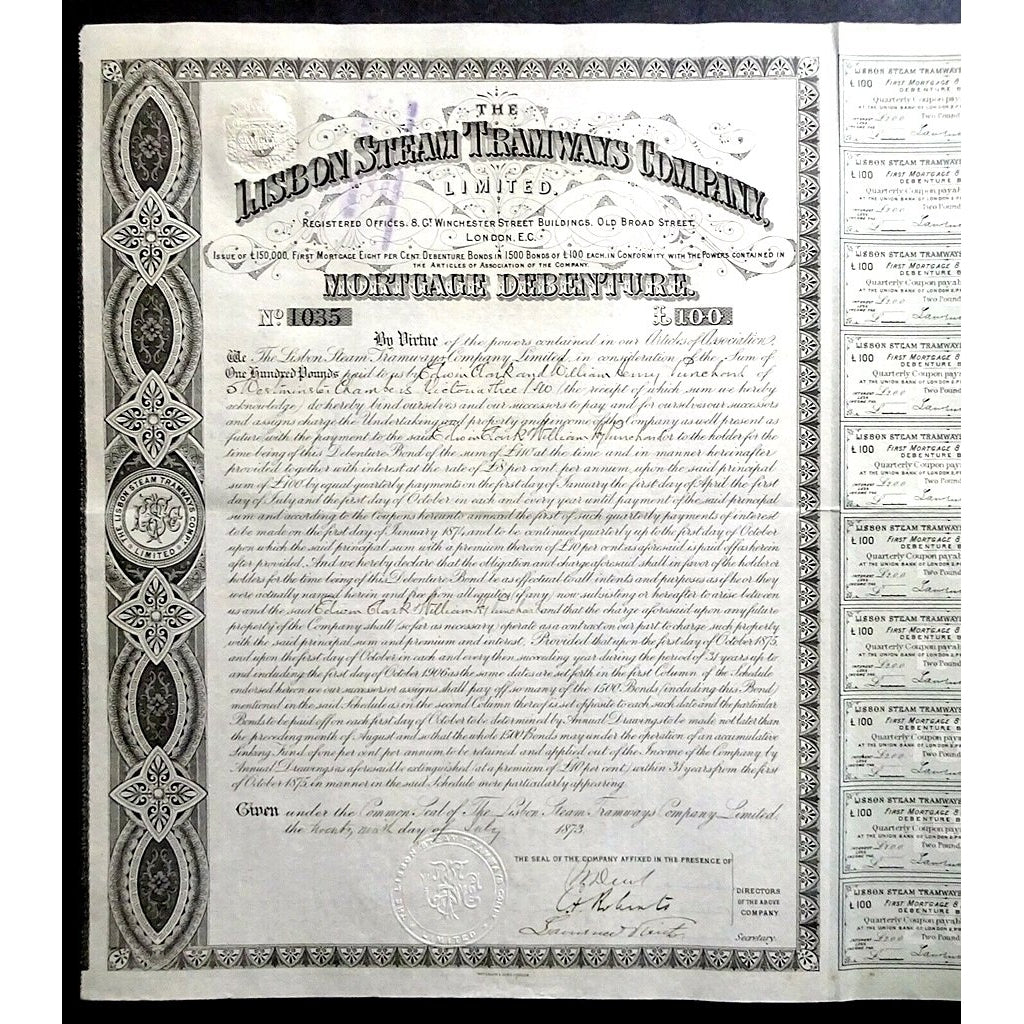 THE
LISBON STEAM TRAMWAYS COMPANY,
LIMITED.
REGISTERED OFFICES. 8. Gt WINCHESTER STREET BUILDINGS. OLD BROAD STREET.
LONDON. E.C.
ISSUE OF £150,000, FIRST MORTGAGE EIGHT PER CENT. DEBENTURE BONDS IN 1500 BONDS OF £100 EACH, IN CONFORMITY WITH THE POWERS CONTAINED IN
THE ARTICLES OF ASSOCIATION OF THE COMPANY.
MORTGAGE DEBENTURE.
No 1035 £100
By Virtue of the powers contained in our Articles of Association,
We The Lisbon Steam Tramways Company Limited, in consideration of the Sum of
One Hundred Pounds paid to us by Edwin Clark and William Henry Punchard of
5 Westminster Chambers Victoria Street (the receipt of which sum we hereby
acknowledge) do hereby bind ourselves and our successors to pay and for ourselves our successors
and assigns charge the Undertaking and property and income of the Company as well present as
future with the payment to the said Edwin Clark William H Punchard or to the holder for the
time being of this Debenture Bond of the sum of £110 at the time and in manner hereinafter
provided together with interest at the rate of £8 per cent. per annum, upon the said principal
sum of £100 by equal quarterly payments on the first day of January the first day of April the first
day of July and the first day of October in each and every year until payment of the said principal
sum and according to the coupons hereunto annexed the first of such quarterly payments of interest
to be made on the first day of January 1874, and to be continued quarterly up to the first day of October
upon which the said principal sum with a premium thereon of £10 per cent as aforesaid is paid off as herein
after provided. And we hereby declare that the obligation and charge aforesaid shall in favor of the holder or
holders for the time being of this Debenture Bond be as effectual to all intents and purposes as if he or they
were actually named herein and free from all equities if any now subsisting or hereafter to arise between
us and the said Edwin Clark William H Punchard and that the charge aforesaid upon any future
property of the Company shall so far as necessary operate as a contract on our part to charge such property
with the said principal sum and premium and interest. Provided that upon the first day of October 1875,
and upon the first day of October in each and every then succeeding year during the period of 31 years up to
and including the first day of October 1906 as the same dates are set forth in the first Column of the Schedule
endorsed hereon we our successors or assigns shall pay off so many of the 1500 Bonds (including this Bond)
mentioned in the said Schedule as in the second Column thereof is set opposite to each such date and the particular
Bonds to be paid off on each first day of October to be determined by Annual Drawings to be made not later than
the preceding month of August and so that the whole 1500 Bonds may under the operation of an accumulative
Sinking Fund of one per cent per annum to be retained and applied out of the Income of the Company by
Annual Drawings as aforesaid be extinguished (at a premium of £10 per cent) within 31 years from the first
of October 1875, in manner in the said Schedule more particularly appearing.
Given under the Common Seal of The Lisbon Steam Tramways Company Limited.
the twenty ninth day of July 1873.
THE SEAL OF THE COMPANY AFFIXED IN THE PRESENCE OF
DIRECTORS
OF THE ABOVE
COMPANY
Secretary.
THE LISBON STEAM TRAMWAYS COMPY
LIMITED
LISBON STEAM TRAMWAYS
£100 FIRST MORTGAGE 8
DEBENTURE B
Quarterly Coupon pay
AT THE UNION BANK OF LONDON
Two Pound